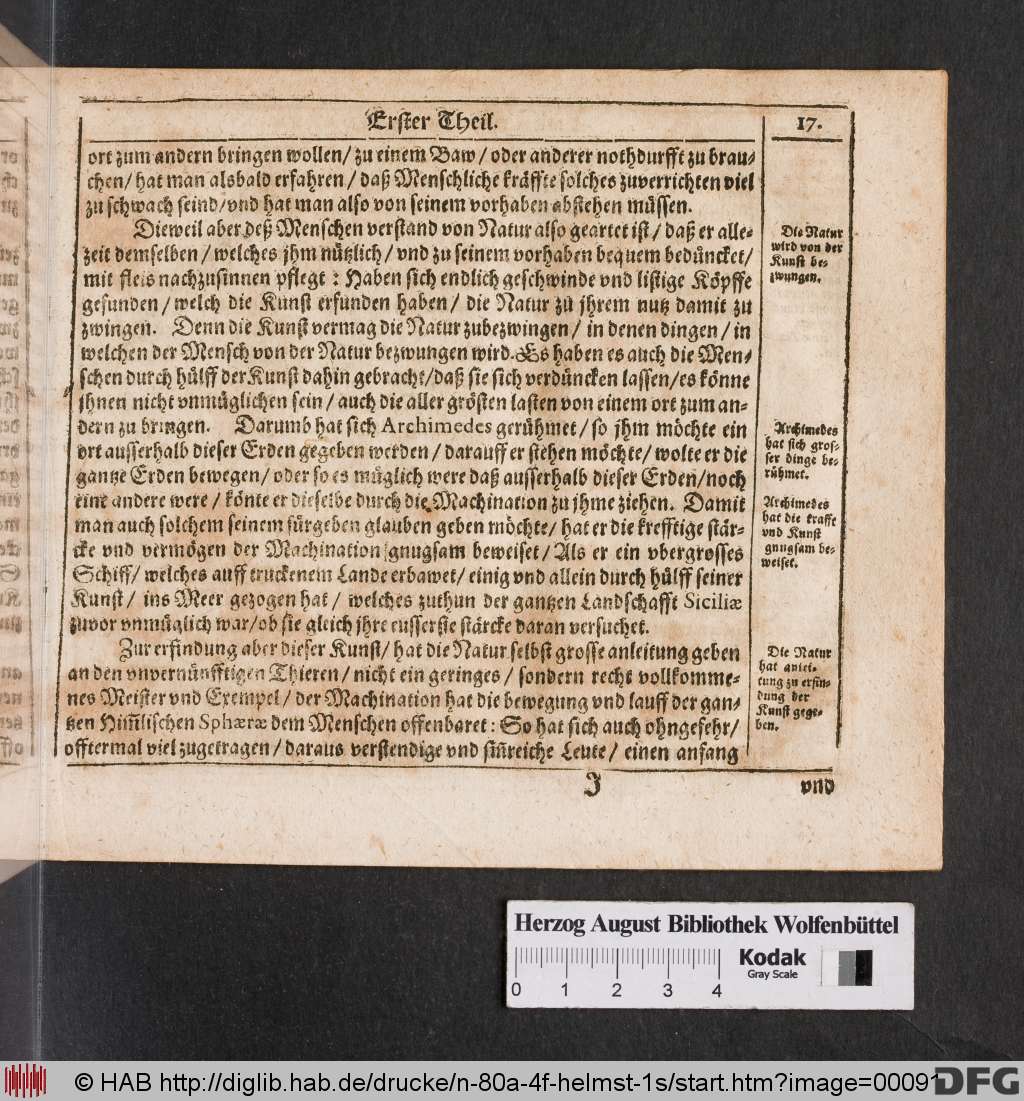 Erster Theil.
17.
ort zum andern bringen wollen/ zu einem Baw/ oder anderer nothdurfft zu brau-
chen/ hat man alsbald erfahren/ daß Menschliche kräffte solches zuverrichten viel
zu schwach seind/vnd hat man also von seinem vorhaben abstehen müssen.
Dieweil aber deß Menschen verstand von Natur also geartet ist/ daß er alle-
zeit demselben/ welches jhm nützlich/ vnd zu seinem vorhaben bequem bedüncket/
mit fleis nachzusinnen pflegt: Haben sich endlich geschwinde vnd listige Köpffe
gefunden/ welch die Kunst erfunden haben/ die Natur zu jhrem nutz damit zu
zwingen. Denn die Kunst vermag die Natur zubezwingen/ in denen dingen/ in
welchen der Mensch von der Natur bezwungen wird. Es haben es auch die Men-
schen durch hülff der Kunst dahin gebracht/daß sie sich verdüncken lassen/es könne
jhnen nicht vnmüglichen sein/ auch die aller grösten lasten von einem ort zum an-
dern zu bringen. Darumb hat sich Archimedes gerühmet/ so jhm möchte ein
ort ausserhalb dieser Erden gegeben werden/ darauff er stehen möchte/ wolte er die
gantze Erden bewegen/ oder so es müglich were daß ausserhalb dieser Erden/noch
eine andere were/ könte er dieselbe durch die Machination zu jhme ziehen. Damit
man auch solchem seinem fürgeben glauben geben möchte/ hat er die krefftige stär-
cke vnd vermögen der Machination gnugsam beweiset/ Als er ein vbergrosses
Schiff/ welches auff truckenem Lande erbawet/ einig vnd allein durch hülff seiner
Kunst/ ins Meer gezogen hat/ welches zuthun der gantzen Landschafft Siciliæ
zuvor vnmüglich war/ob sie gleich jhre eusserste stärcke daran versuchet.
Zur erfindung aber dieser Kunst/ hat die Natur selbst grosse anleitung geben
an den vnvernünfftigen Thieren/ nicht ein geringes/ sondern recht vollkomme-
nes Meister vnd Exempel/ der Machination hat die bewegung vnd lauff der gan-
tzen Him̃lischen Sphæræ dem Menschen offenbaret: So hat sich auch ohngefehr/
offtermal viel zugetragen/ daraus verstendige vnd sin̄reiche Leute/ einen anfang
J
vnd
Die Natur
wird von der
Kunst be-
zwungen.
Archimedes
hat sich gros-
ser dinge be-
rühmet.
Archimedes
hat die krafft
vnd Kunst
gnugsam be-
weiset.
Die Natur
hat anlei-
tung zu erfin-
dung der
Kunst gege-
ben.
Herzog August Bibliothek Wolfenbüttel
Kodak
Gray Scale
0 1 2 3 4
© HAB http://diglib.hab.de/drucke/n-80a-4f-helmst-1s/start.htm?image=00091
DFG